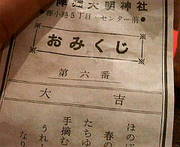 大明神社
5丁目・センター前
おみくじ
第六番
大吉
ほのぼ
春の
たちゆ
手摘む
うれ